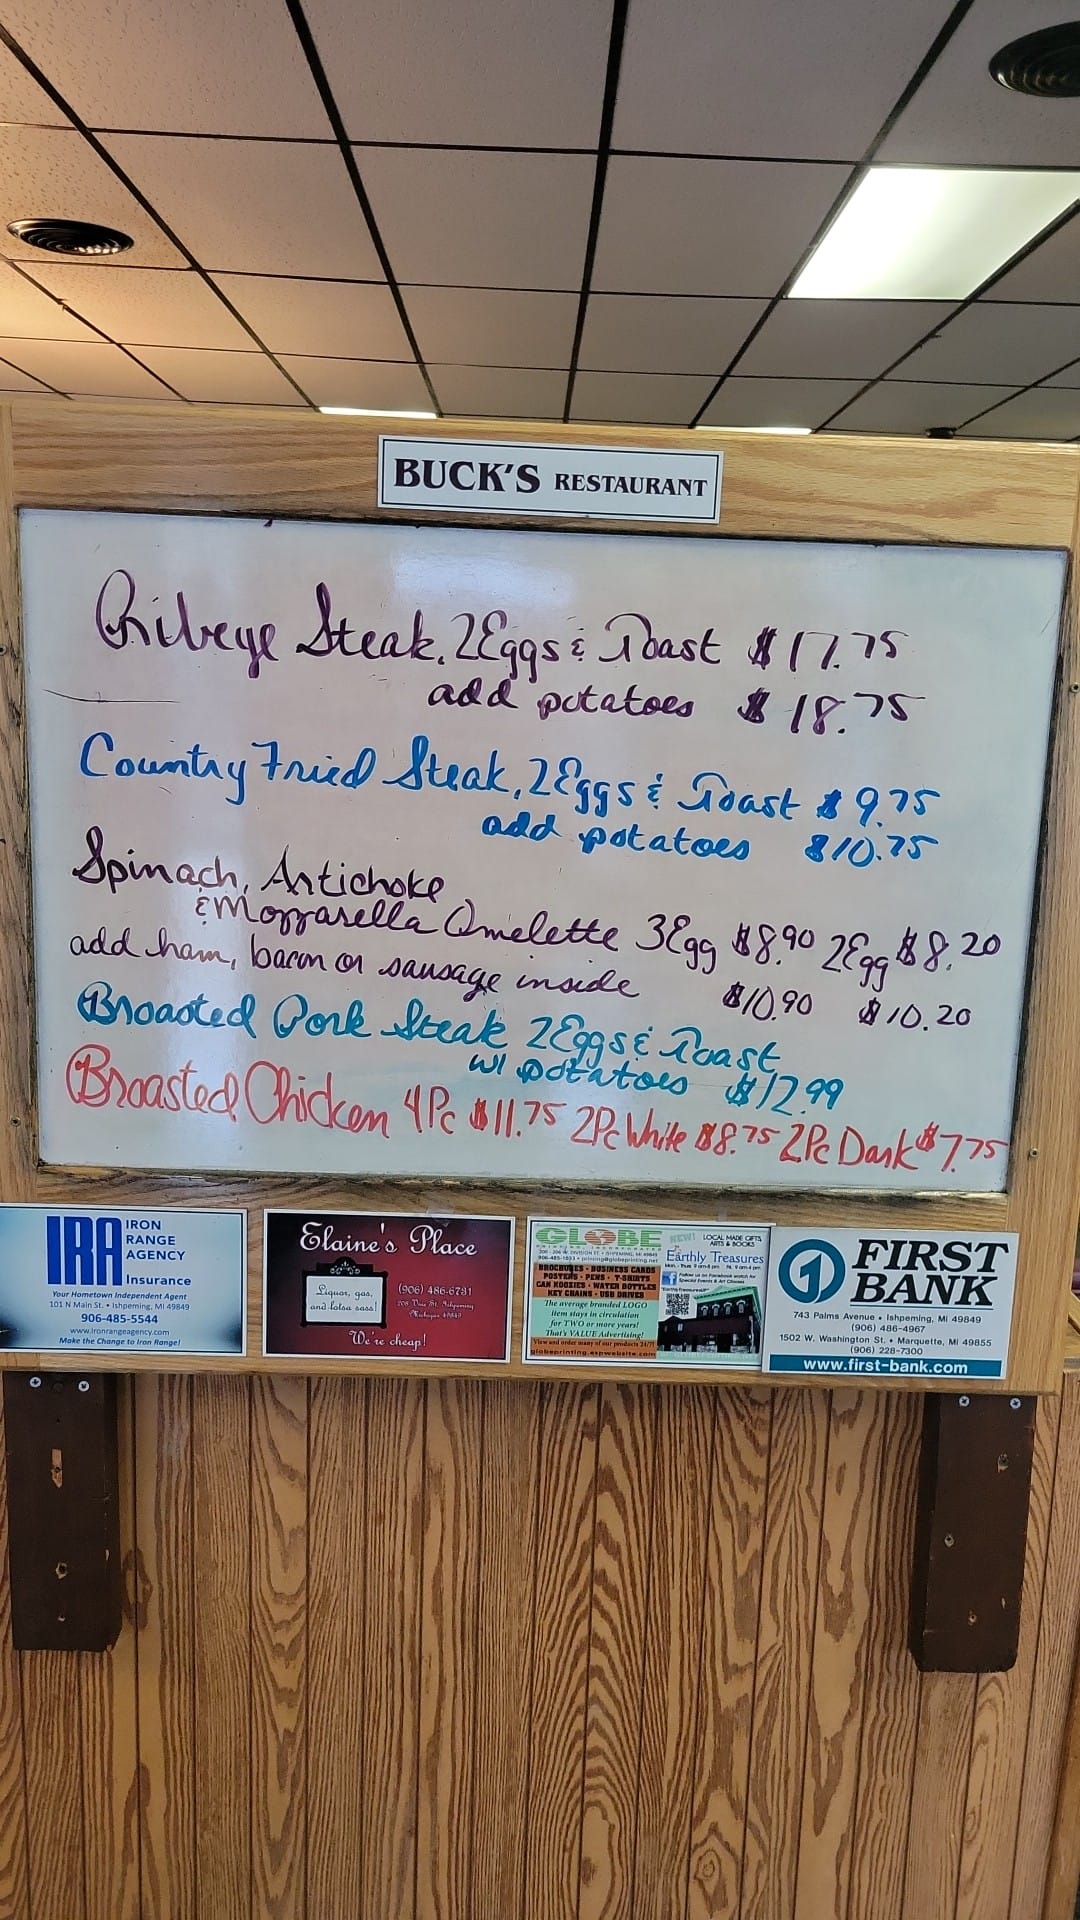 BUCK'S RESTAURANT
Ribeye Steak, 2 Eggs & Toast $17.75
add potatoes $18.75
Country Fried Steak, 2 Eggs & Toast $9.75
add potatoes $10.75
Spinach, Artichoke
& Mozzarella Omelette 3 Egg $8.90 2 Egg $8.20
add ham, bacon or sausage inside $10.90 $10.20
Broasted Pork Steak 2 Eggs & Toast
w/ potatoes $12.99
Broasted Chicken 4 Pc $11.75 2 Pc White $8.75 2 Pc Dark $7.75
IRA IRON
RANGE
AGENCY
Insurance
Your Hometown Independent Agent
101 N Main St. • Ishpeming, MI 49849
906-485-5544
www.ironrangeagency.com
Make the Change to Iron Range!
Elaine's Place
Liquor, gas,
and salsa sass!
(906) 486-6781
Ishpeming
Michigan 49849
We're cheap!
GLOBE
PRINTING, INCORPORATED
BROCHURES - BUSINESS CARDS
POSTERS - PENS - T-SHIRTS
CAN KOOZIES - WATER BOTTLES
KEY CHAINS - USB DRIVES
The average branded LOGO
item stays in circulation
for TWO or more years!
That's VALUE Advertising!
View and order many of our products 24/7!
globeprinting.espwebsite.com
NEW!
LOCAL MADE GIFTS
ARTS & BOOKS
Earthly Treasures
1 FIRST
BANK
743 Palms Avenue • Ishpeming, MI 49849
(906) 486-4967
1502 W. Washington St. • Marquette, MI 49855
(906) 228-7300
www.first-bank.com